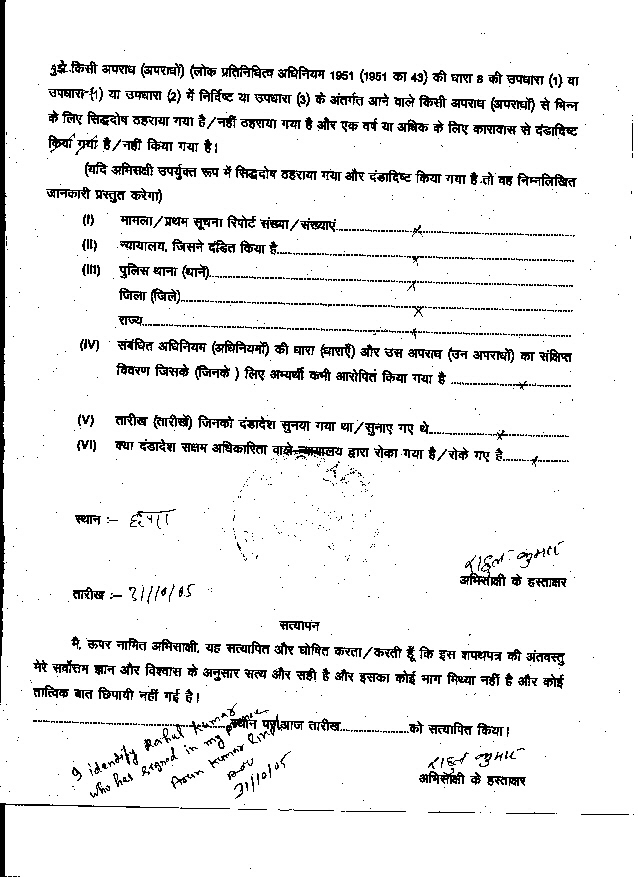 मुझे किसी अपराध (अपराधों) (लोक प्रतिनिधित्व अधिनियम 1951 (1951 का 43) की धारा 8 की उपधारा (1) या
उपधारा (1) या उपधारा (2) में निर्दिष्ट या उपधारा (3) के अंतर्गत आने वाले किसी अपराध (अपराधों) से भिन्न
के लिए सिद्धदोष ठहराया गया है/नहीं ठहराया गया है और एक वर्ष या अधिक के लिए कारावास से दंडादिष्ट
किया गया है/नहीं किया गया है।
(यदि अभिसाक्षी उपर्युक्त रूप में सिद्धदोष ठहराया गया और दंडादिष्ट किया गया है तो वह निम्नलिखित
जानकारी प्रस्तुत करेगा)
(I) मामला/प्रथम सूचना रिपोर्ट संख्या/संख्याएं........x........
(II) न्यायालय, जिसने दंडित किया है........x........
(III) पुलिस थाना (थानें)........x........
जिला (जिले)........x........
राज्य........x........
(IV) संबंधित अधिनियम (अधिनियमों) की धारा (धाराएँ) और उस अपराध (उन अपराधों) का संक्षिप्त
विवरण जिसके (जिनके ) लिए अभ्यर्थी कभी आरोपित किया गया है ........x........
(V) तारीख (तारीखें) जिनको दंडादेश सुनया गया था/सुनाए गए थे........x........
(VI) क्या दंडादेश सक्षम अधिकारिता वाले न्यायालय द्वारा रोका गया है/रोके गए है........x........
स्थान :-
राहुल कुमार
अभिसाक्षी के हस्ताक्षर
तारीख :- 31/10/05
सत्यापन
मै, ऊपर नामित अभिसाक्षी, यह सत्यापित और घोषित करता/करती हूँ कि इस शपथपत्र की अंतवस्तु
मेरे सर्वोत्तम ज्ञान और विश्वास के अनुसार सत्य और सही है और इसका कोई भाग मिथ्या नहीं है और कोई
तात्विक बात छिपायी नहीं गई है।
........स्थान पर आज तारीख........को सत्यापित किया।
I identify Rahul Kumar
who has signed in my presence
Arun Kumar
31/10/05
राहुल कुमार
अभिसाक्षी के हस्ताक्षर